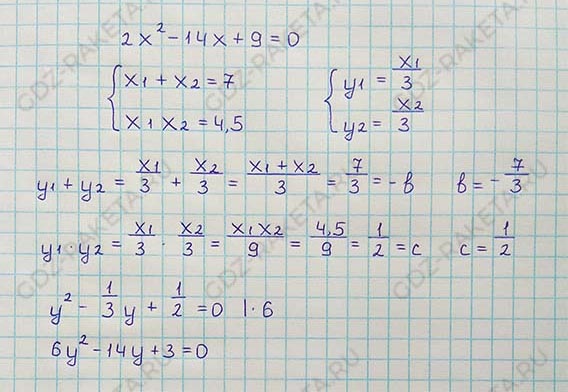 2x² - 14x + 9 = 0
{ x₁ + x₂ = 7
x₁x₂ = 4,5
{ y₁ = x₁/3
y₂ = x₂/3
y₁ + y₂ = x₁/3 + x₂/3 = (x₁ + x₂)/3 = 7/3 = -b b = -7/3
y₁ · y₂ = x₁/3 · x₂/3 = x₁x₂/9 = 4,5/9 = 1/2 = c c = 1/2
y² - 1/3 y + 1/2 = 0 | · 6
6y² - 14y + 3 = 0
GDZ-RAKETA.RU